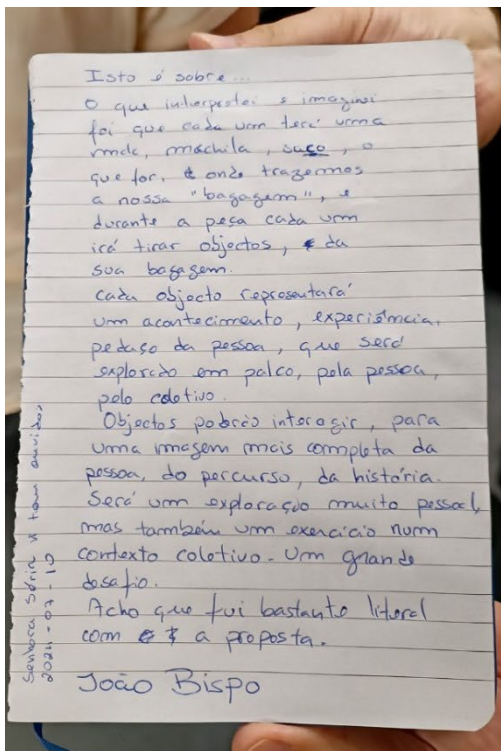 Isto é sobre...
O que interpretei e imaginei
foi que cada um terá uma
mala, mochila, saco, o
que for, onde trazemos
a nossa "bagagem", e
durante a peça cada um
irá tirar objectos, da
sua bagagem.
cada objecto representará
um acontecimento, experiência,
pedaço da pessoa, que será
explorado em palco, pela pessoa,
pelo coletivo.
Objectos poderão interagir, para
uma imagem mais completa da
pessoa, do percurso, da história.
Será um exploração muito pessoal,
mas também um exercício num
contexto coletivo. Um grande
desafio.
Acho que fui bastante literal
com a proposta.
João Bispo
Senhora Séria tem ouvidos
2024-07-10